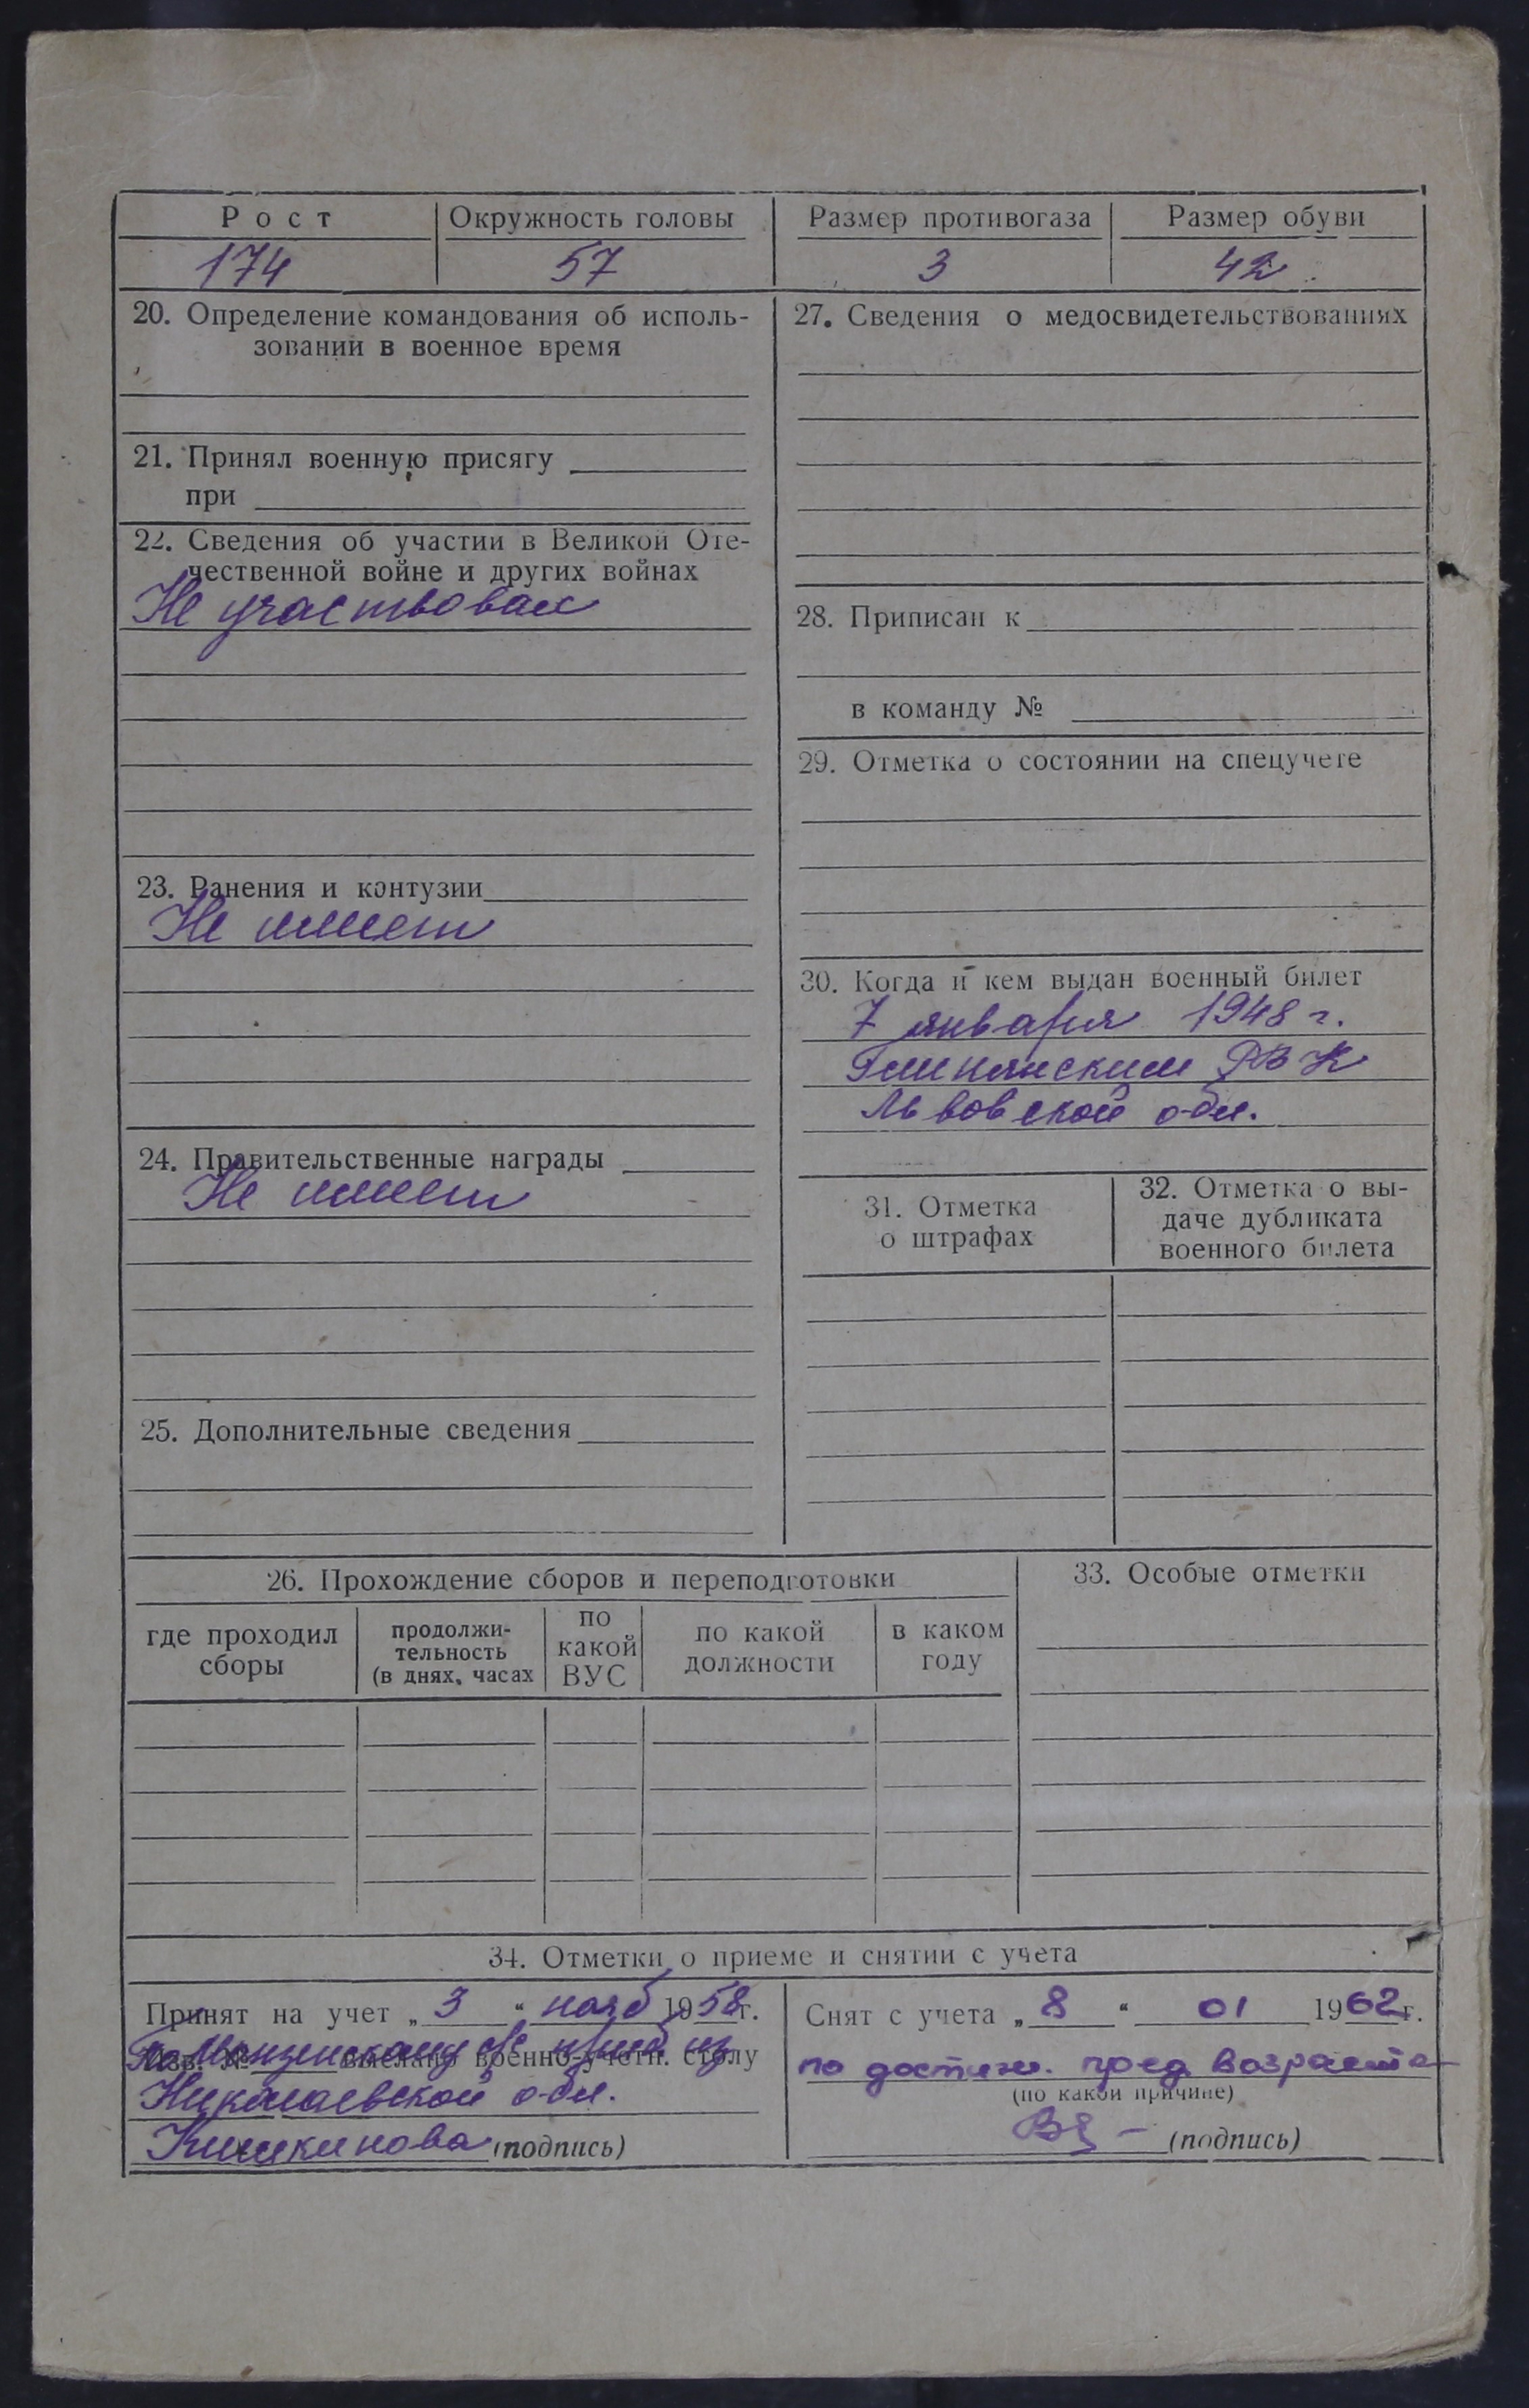 Рост Окружность головы Размер противогаза Размер обуви
174 57 3 42
20. Определение командования об исполь-
зовании в военное время
21. Принял военную присягу
при
22. Сведения об участии в Великой Оте-
чественной войне и других войнах
Не участвовал
23. Ранения и контузии
Не имеет
24. Правительственные награды
Не имеет
25. Дополнительные сведения
27. Сведения о медосвидетельствованиях
28. Приписан к
в команду №
29. Отметка о состоянии на спецучете
30. Когда и кем выдан военный билет
7 января 1948 г.
Глинянским РВК
Львовской обл.
31. Отметка
о штрафах
32. Отметка о вы-
даче дубликата
военного билета
26. Прохождение сборов и переподготовки
где проходил
сборы
продолжи-
тельность
(в днях, часах
по
какой
ВУС
по какой
должности
в каком
году
33. Особые отметки
34. Отметки о приеме и снятии с учета
Принят на учет „3“ нояб 1958г.
Изв. № выслано военно-учетн. столу
Николаевской обл.
(подпись)
Снят с учета „8“ 01 1962г.
по достиж. пред возраста
(по какой причине)
(подпись)